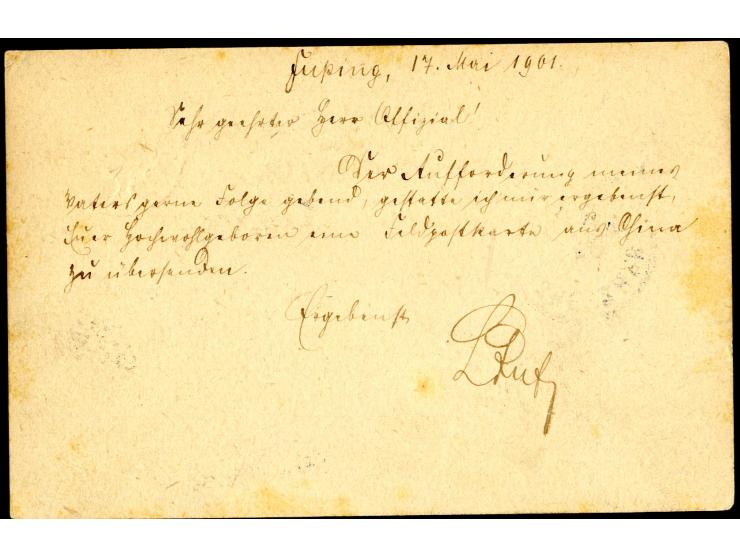 Fuping, 17. Mai 1901.
Sehr geehrter Herr Offizial!
Der Aufforderung meines
Vaters gerne Folge gebend, gestatte ich mir ergebenst,
Euer Hochwohlgeboren eine Feldpostkarte aus China
zu übersenden.
Ergebenst